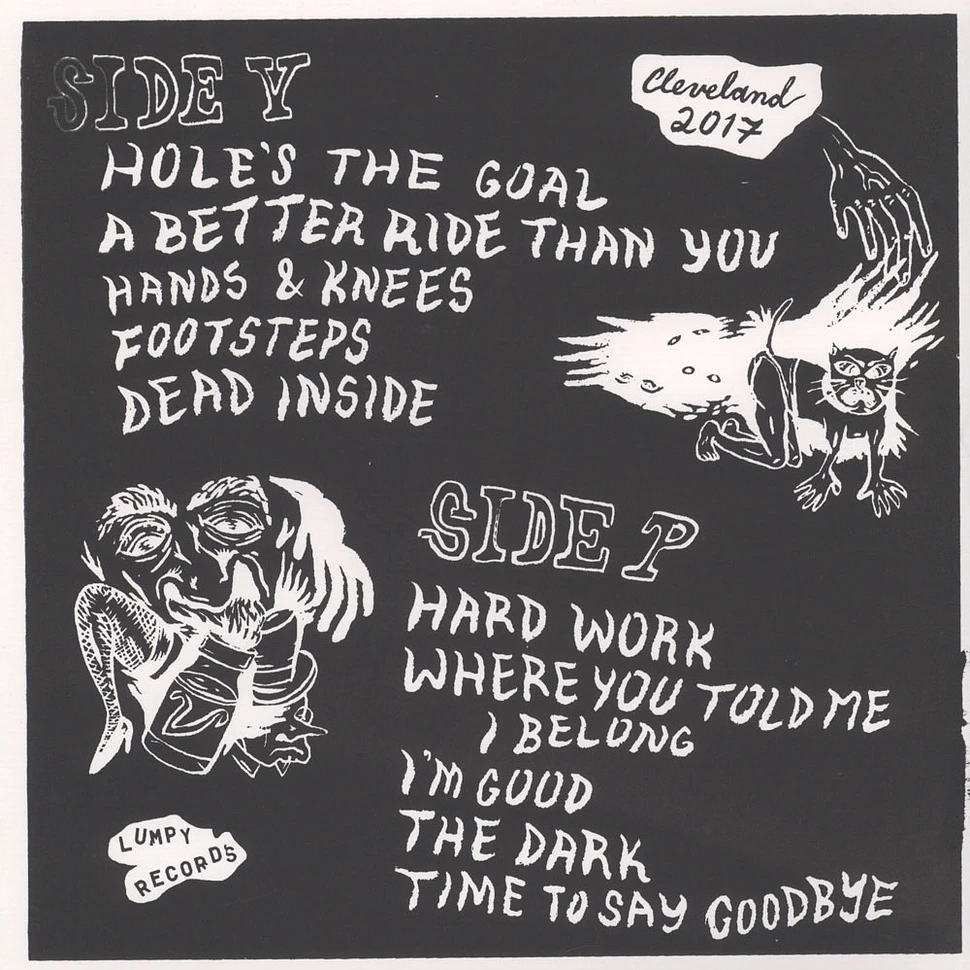 SIDE Y
Cleveland
2017
HOLE'S THE GOAL
A BETTER RIDE THAN YOU
HANDS & KNEES
FOOTSTEPS
DEAD INSIDE
SIDE P
HARD WORK
WHERE YOU TOLD ME
I BELONG
I'M GOOD
THE DARK
TIME TO SAY GOODBYE
LUMPY
RECORDS